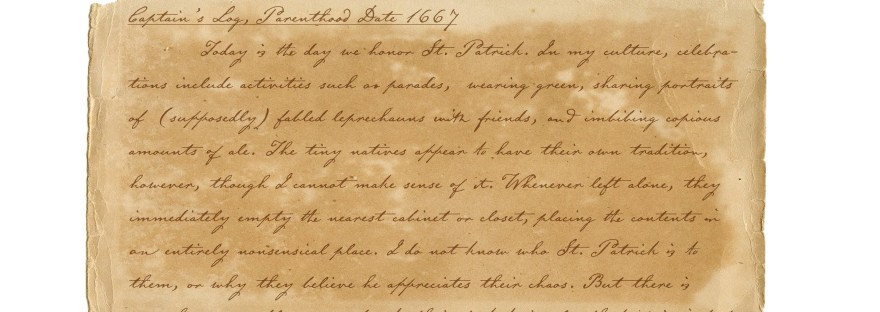 Captain's Log, Parenthood Date 1667
Today is the day we honor St. Patrick. In my culture, celebra-
tions include activities such as parades, wearing green, sharing portraits
of (supposedly) fabled leprechauns with friends, and imbibing copious
amounts of ale. The tiny natives appear to have their own tradition,
however, though I cannot make sense of it. Whenever left alone, they
immediately empty the nearest cabinet or closet, placing the contents in
an entirely nonsensical place. I do not know who St. Patrick is to
them, or why they believe he appreciates their chaos. But there is